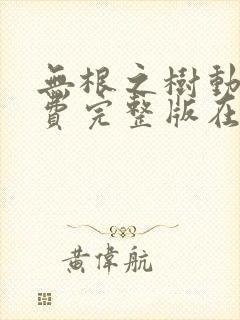 無根之樹動
費完整版在
黃偉航